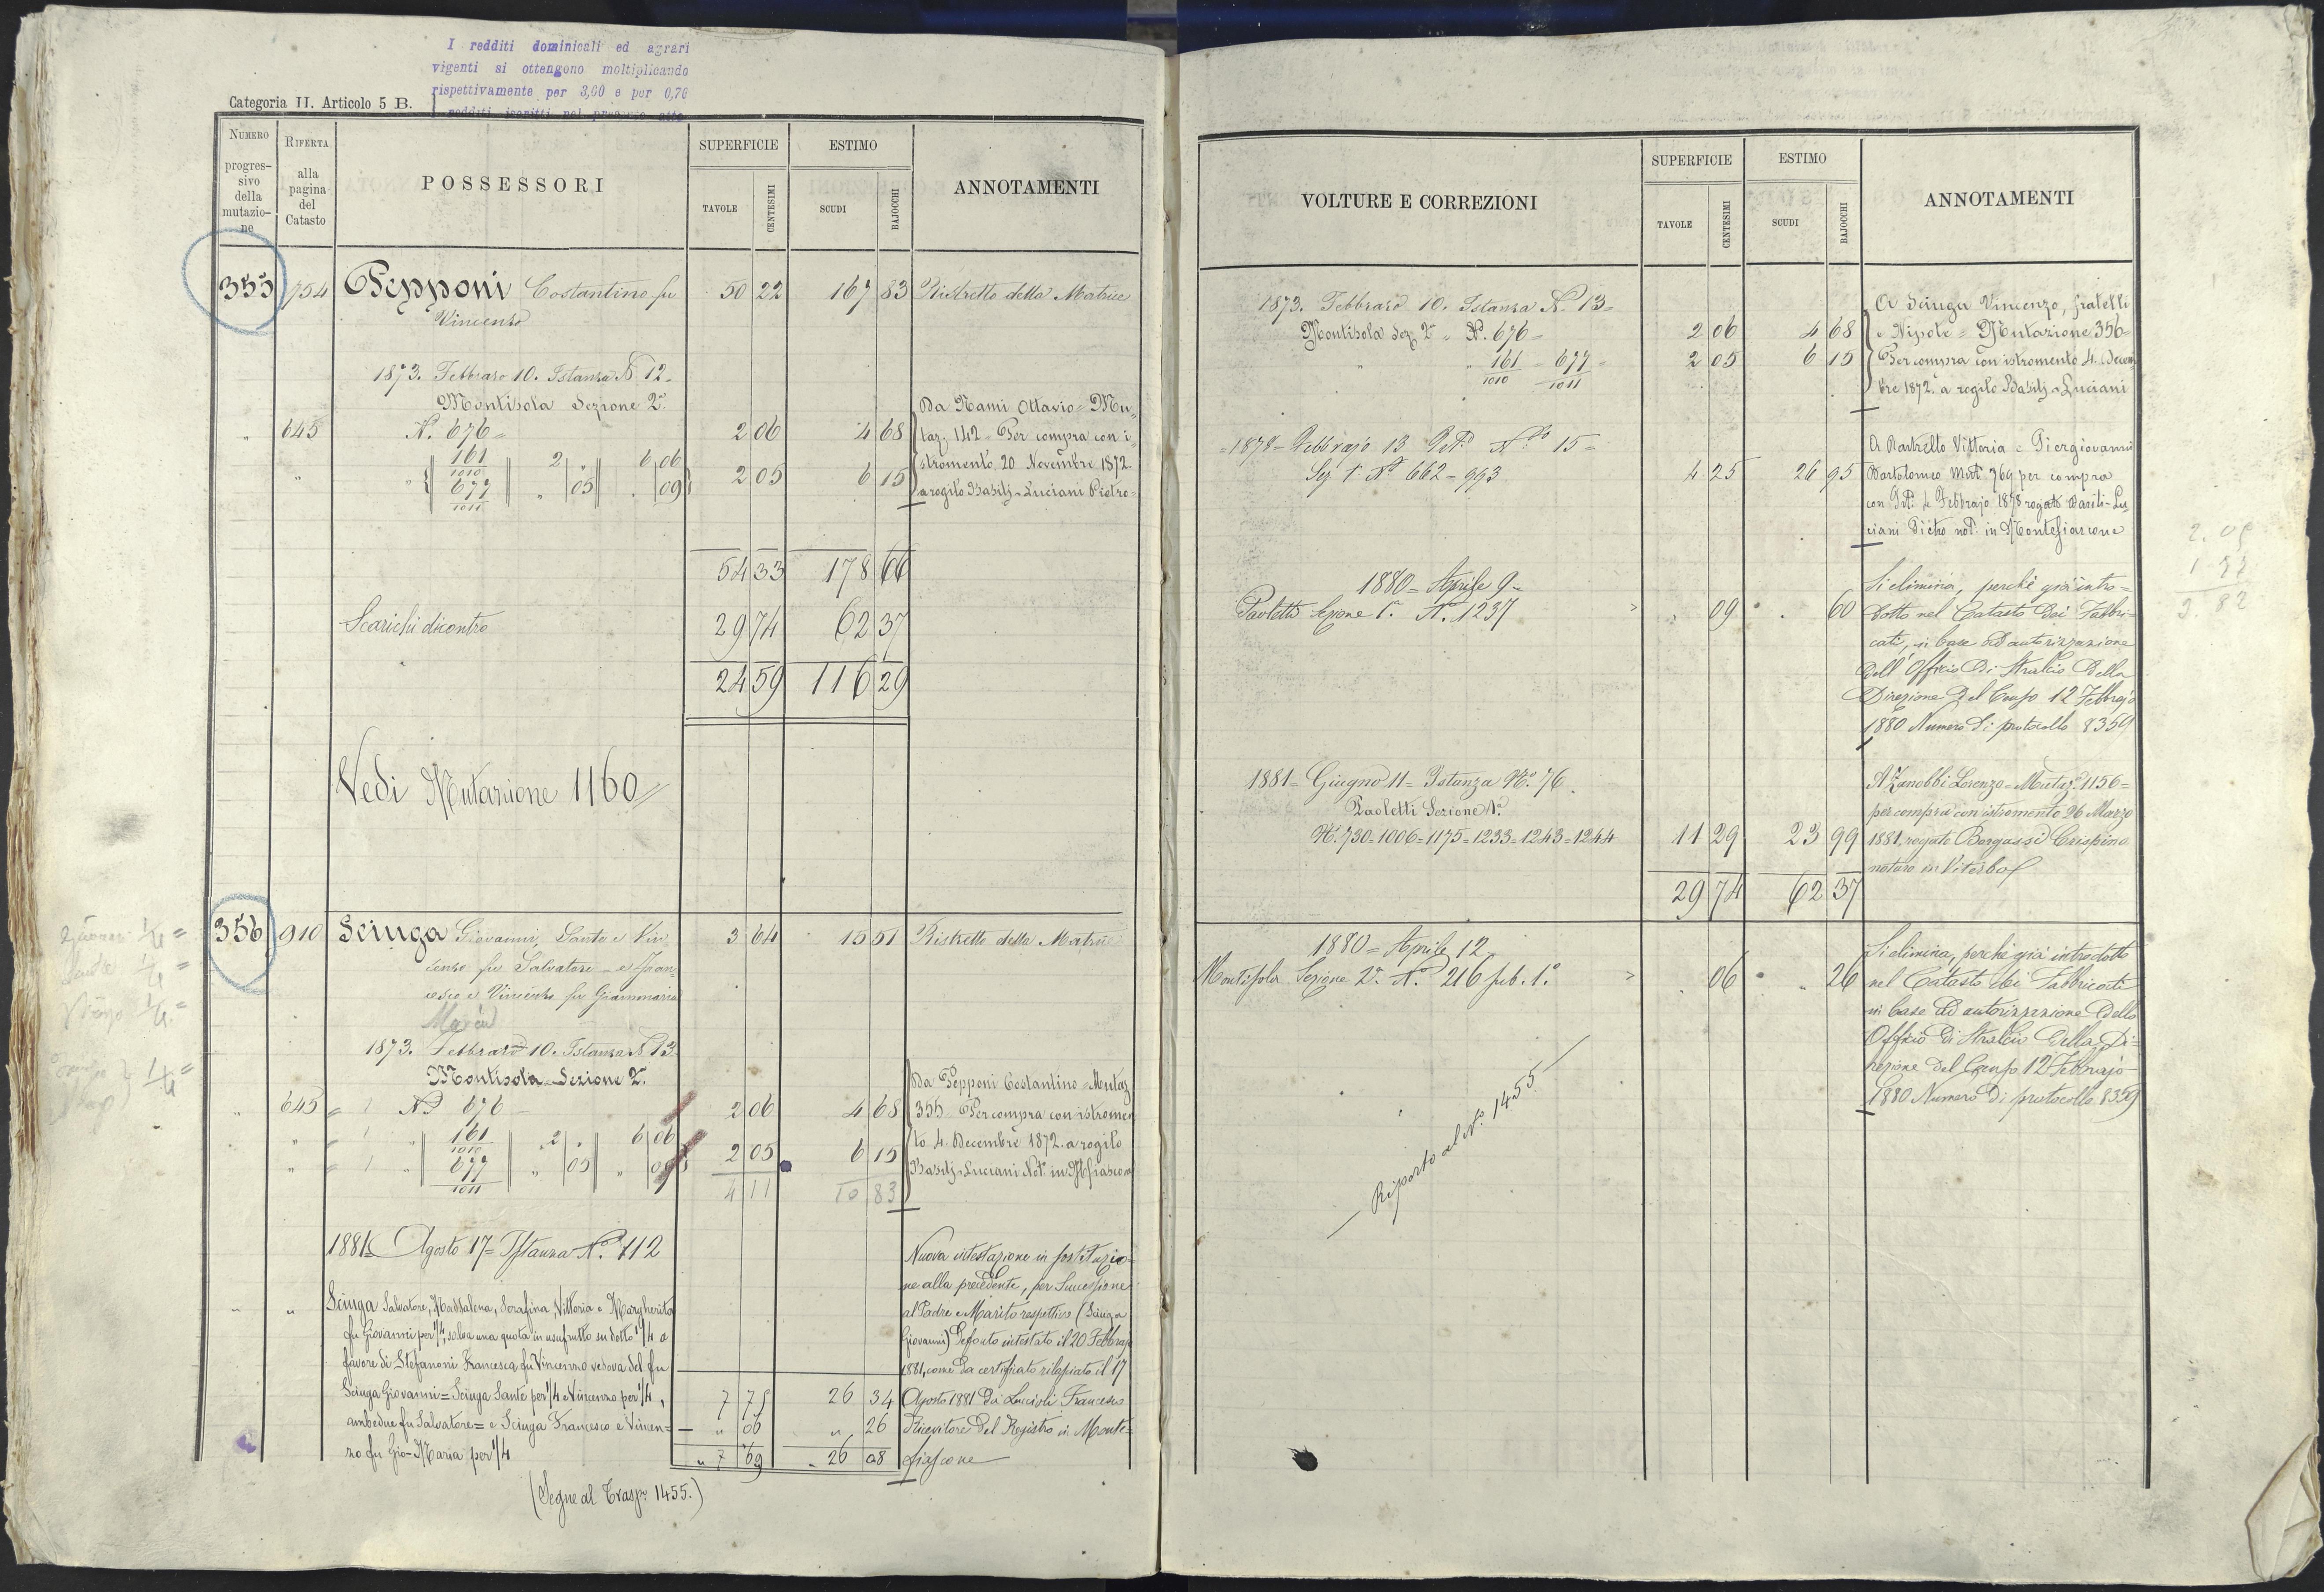 I redditi dominicali ed agrari
vigenti si ottengono moltiplicando
rispettivamente per 3,60 e per 0,70
redditi iscritti nel presente atto
Categoria II. Articolo 5 B.
NUMERO progressivo della mutazione
RIFERTA alla pagina del Catasto
POSSESSORI
SUPERFICIE
TAVOLE CENTESIMI
ESTIMO
SCUDI BAJOCCHI
ANNOTAMENTI
353 754 Pepponi Costantino fu 50 22 167 83 Ristretto della Matrice
Vincenzo
1873. Febbraro 10. Istanza N. 12
Montisola Sezione 2ª
Da Nami Ottavio = Mu
„ 645 N. 676 = 2 06 4 68 taz. 142 = Per compra con i
161/1010 2 „ 6 06 stromento 20 Novembre 1872.
„ 677/1011 „ 05 „ 09 2 05 6 15 a rogito Basilj-Luciani Pietro=
54 33 178 66
Scarichi dicontro 29 74 62 37
24 59 116 29
Vedi Mutazione 1160
356 910 Sciuga Giovanni, Sante e Vin 3 64 15 51 Ristretto della Matrice
cenzo fu Salvatore = e Fran
cesco e Vincenzo fu Giammaria
1873. Febbraro 10. Istanza N. 13
Montisola Sezione 2ª
Da Pepponi Costantino = Mutaz
„ 645 N. 676 2 06 4 68 355 = Per compra con istromen
„ 161/1010 2 „ 6 06 to 4. Decembre 1872. a rogito
„ 677/1011 „ 05 „ 09 2 05 6 15 Basilj-Luciani Not. in Mfiascone
4 11 10 83
1881 = Agosto 17 = Istanza N.º 112
Nuova intestazione in sostituzio
ne alla precedente, per Successione
„ „ Sciuga Salvatore, Maddalena, Serafina, Vittoria e Margherita al Padre e Marito respettivo (Sciuga
fu Giovanni per 1/4, salva una quota in usufrutto su detto 1/4 a Giovanni) Defonto intestato il 20 Febbrajo
favore di Stefanoni Francesca fu Vincenzo vedova del fu 1881, come da certificato rilasciato il 17
Sciuga Giovanni = Sciuga Sante per 1/4 e Vincenzo per 1/4, 7 75 26 34 Agosto 1881 da Luccioli Francesco
ambedue fu Salvatore = e Sciuga Francesco e Vincen= — „ 06 „ 26 Ricevitore del Registro in Monte=
zo fu Gio-Maria per 1/4 „ 7 69 „ 26 08 fiascone
(Segue al Trasp. 1455.)
VOLTURE E CORREZIONI
SUPERFICIE
TAVOLE CENTESIMI
ESTIMO
SCUDI BAJOCCHI
ANNOTAMENTI
1873. Febbraro 10. Istanza N. 13 = A Sciuga Vincenzo, fratelli
Montisola Sez. 2ª „ N. 676 = 2 06 4 68 e Nipote = Mutazione 356=
„ „ 161/1010 = 677/1011 = 2 05 6 15 Per compra con istromento 4. Decem
bre 1872. a rogito Basilj-Luciani
=1878= Febbrajo 13 N.º 15= A Rastrello Vittoria e Piergiovanni
Sez 1ª Nº 662 - 993 4 25 26 95 Bartolomeo Mutª 769 per compra
con Febbrajo 1878 rogato Basili-Lu
ciani Pietro not. in Montefiascone
1880 = Aprile 9 = Si elimina, perchè già intro=
Paoletti Sezione 1ª. N. 1237 „ 09 „ 60 dotto nel Catasto dei Fabbri=
cati, in base ad autorizzazione
dell'Officio di Stralcio della
Direzione del Censo 12 Febbrajo
1880 Numero di protocollo 8359
1881 = Giugno 11 = Istanza N.º 76 A Zanobbi Lorenzo = Mutaz. 1156=
Paoletti Sezione 1ª. per compra con istromento 26 Marzo
Nº 730=1006=1175=1233=1243=1244 11 29 23 99 1881, rogato Borgassi Crispino
notaro in Viterbo
29 74 62 37
1880 = Aprile 12 Si elimina, perchè già introdotto
Montisola Sezione 2ª. Nº. 216 sub. 1º „ 06 „ 26 nel Catasto dei Fabbricati
in base ad autorizzazione dello
Officio di Stralcio della Di=
rezione del Censo 12 Febbrajo
1880 Numero di protocollo 8359
— Riporto al Nº. 1455 —